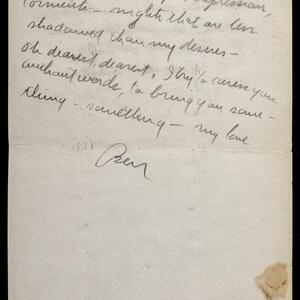 torments – nights that are less
shadowed than my desires –
oh dearest, dearest, I try to caress you
without words, to bring you some-
thing – something – my love
Ben